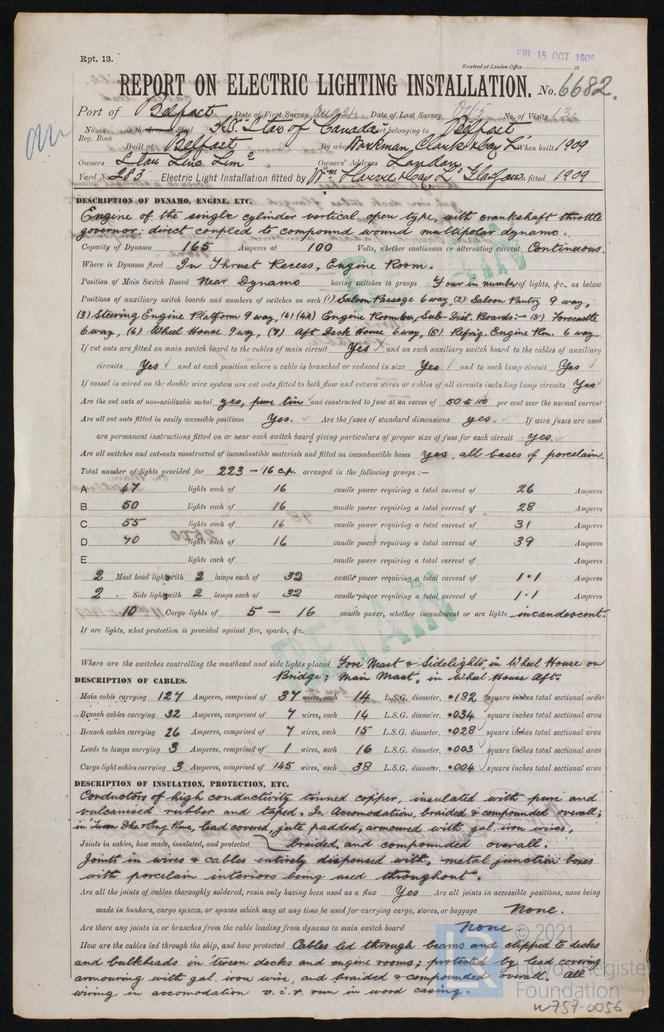 Rpt. 13.
FRI. 15 OCT 1909
Received at London Office
REPORT ON ELECTRIC LIGHTING INSTALLATION. No. 6682.
Port of Belfast Date of First Survey Aug 24 Date of Last Survey Oct 5 No. of Visits 13
No. in Reg. Book on the Steel S.S. "Star of Canada" Port belonging to Belfast
Built at Belfast By whom Workman, Clark & Coy Ld When built 1909
Owners Star Line Limd Owners' Address London
Yard No. 283 Electric Light Installation fitted by Wm Harvie & Coy Ld Glasgow. fitted 1909
DESCRIPTION OF DYNAMO, ENGINE, ETC.
Engine of the single cylinder vertical open type, with crankshaft throttle
governor, direct coupled to compound wound multipolar dynamo.
Capacity of Dynamo 165 Amperes at 100 Volts, whether continuous or alternating current Continuous
Where is Dynamo fixed In Thrust Recess, Engine Room.
Position of Main Switch Board Near Dynamo having switches to groups Four in number of lights, &c., as below
Positions of auxiliary switch boards and numbers of switches on each (1) Saloon Passage 6 way, (2) Saloon Pantry 9 way,
(3) Steering Engine Platform 9 way, (4) (4A) Engine Room Sub-Dist. Boards:- (5) Forecastle
6 way, (6) Wheel House 9 way, (7) Aft Deck House 6 way, (8) Refrig. Engine Rm. 6 way
If cut outs are fitted on main switch board to the cables of main circuit Yes and on each auxiliary switch board to the cables of auxiliary
circuits Yes and at each position where a cable is branched or reduced in size Yes and to each lamp circuit Yes
If vessel is wired on the double wire system are cut outs fitted to both flow and return wires or cables of all circuits including lamp circuits Yes
Are the cut outs of non-oxidizable metal yes, pure tin and constructed to fuse at an excess of 50 to 100 per cent over the normal current
Are all cut outs fitted in easily accessible positions Yes. Are the fuses of standard dimensions yes. If wire fuses are used
are permanent instructions fitted on or near each switch board giving particulars of proper size of fuse for each circuit yes.
Are all switches and cut-outs constructed of incombustible materials and fitted on incombustible bases yes, all bases of porcelain.
Total number of lights provided for 223 - 16 c.p. arranged in the following groups :—
A 47 lights each of 16 candle power requiring a total current of 26 Amperes
B 50 lights each of 16 candle power requiring a total current of 28 Amperes
C 55 lights each of 16 candle power requiring a total current of 31 Amperes
D 70 lights each of 16 candle power requiring a total current of 39 Amperes
E lights each of candle power requiring a total current of Amperes
2 Mast head light with 2 lamps each of 32 candle power requiring a total current of 1·1 Amperes
2 Side light with 2 lamps each of 32 candle power requiring a total current of 1·1 Amperes
10 Cargo lights of 5 - 16 candle power, whether incandescent or arc lights incandescent.
RETAIN
If arc lights, what protection is provided against fire, sparks, &c.
Where are the switches controlling the masthead and side lights placed Fore Mast & Sidelights, in Wheel House on
Bridge; Main Mast, in Wheel House Aft.
DESCRIPTION OF CABLES.
Main cable carrying 127 Amperes, comprised of 37 wires, each 14 L.S.G. diameter, ·182 square inches total sectional area
Branch cables carrying 32 Amperes, comprised of 7 wires, each 14 L.S.G. diameter, ·034 square inches total sectional area
Branch cables carrying 26 Amperes, comprised of 7 wires, each 15 L.S.G. diameter, ·028 square inches total sectional area
Leads to lamps carrying 3 Amperes, comprised of 1 wires, each 16 L.S.G. diameter, ·003 square inches total sectional area
Cargo light cables carrying 3 Amperes, comprised of 145 wires, each 38 L.S.G. diameter, ·004 square inches total sectional area
DESCRIPTION OF INSULATION, PROTECTION, ETC.
Conductors of high conductivity tinned copper, insulated with pure and
vulcanised rubber and taped. In Accomodation, braided & compounded overall;
in Tween Dks & Eng Rms, lead covered, jute padded, armoured with gal. iron wires,
Joints in cables, how made, insulated, and protected braided, and compounded overall.
Joints in wires & cables entirely dispensed with, metal junction boxes
with porcelain interiors being used throughout.
Are all the joints of cables thoroughly soldered, resin only having been used as a flux Yes Are all joints in accessible positions, none being
made in bunkers, cargo spaces, or spaces which may at any time be used for carrying cargo, stores, or baggage None.
Are there any joints in or branches from the cable leading from dynamo to main switch board none
How are the cables led through the ship, and how protected Cables led through beams and clipped to decks
and bulkheads in tween decks and engine rooms; protected by lead covering
armouring with gal. iron wire, and braided & compounded overall. All
wiring in accomodation v.i.r. run in wood casing.
© 2021
Lloyd's Register
Foundation
W757-0056